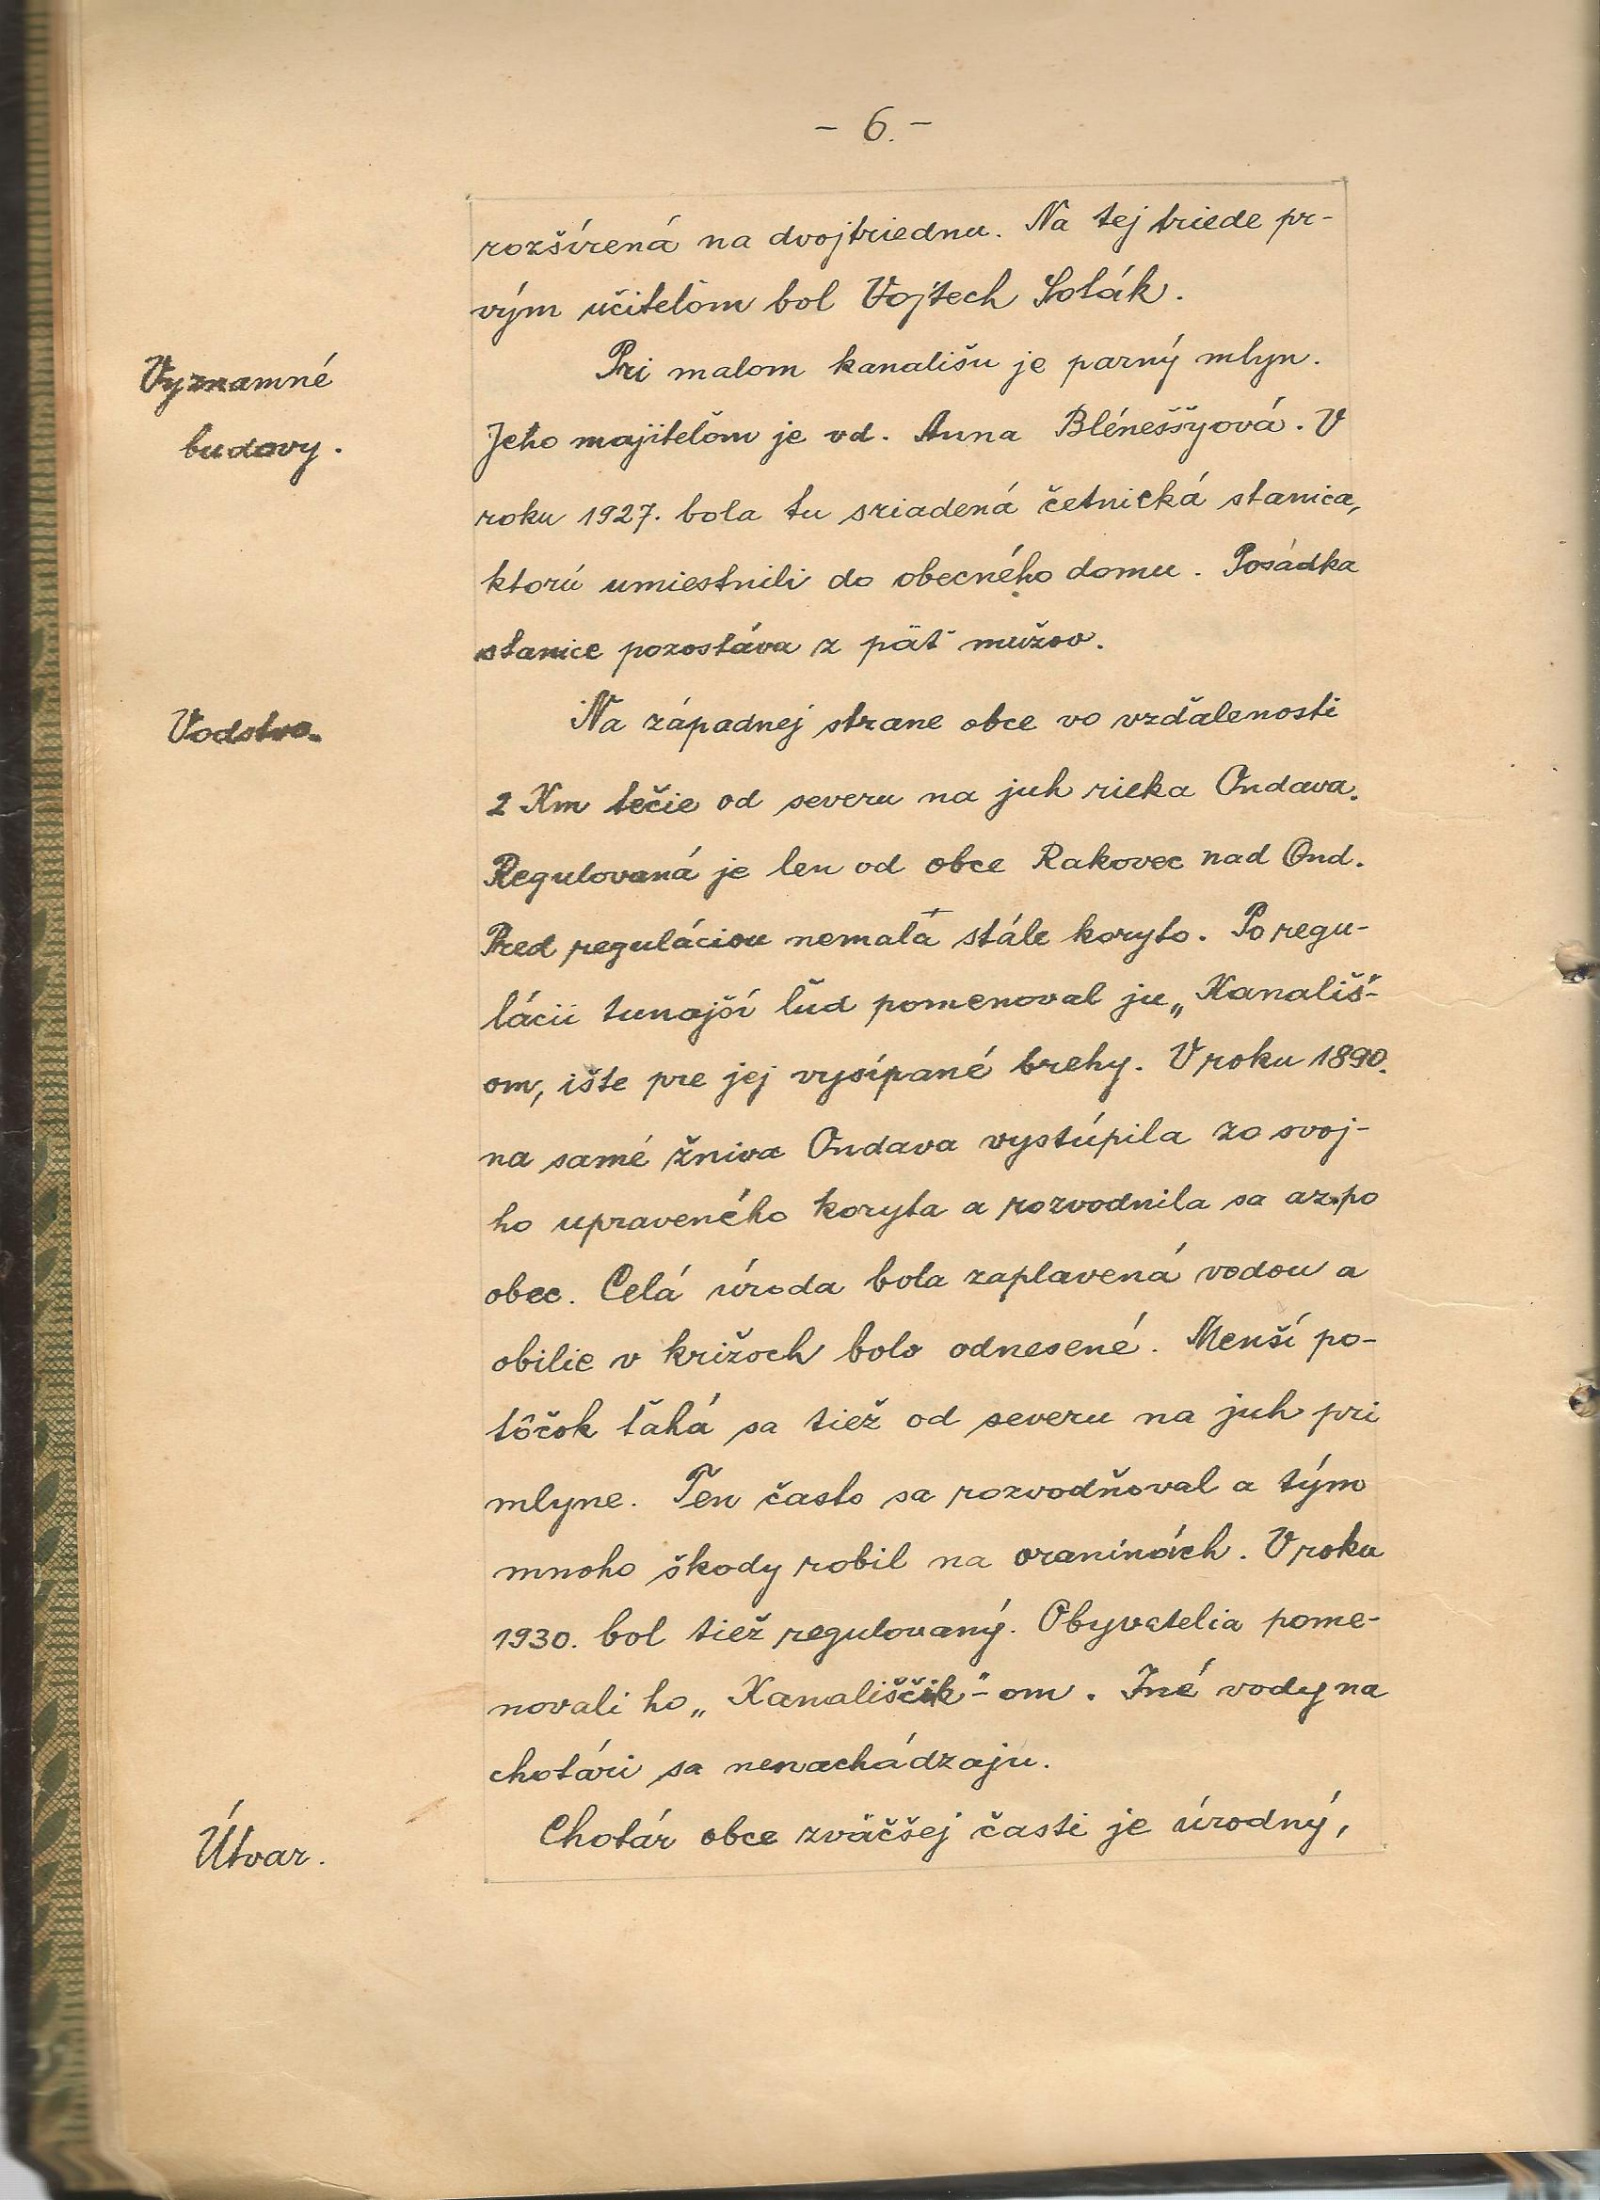 - 6. -
rozšírená na dvojtriednu. Na tej triede pr-
vým učiteľom bol Vojtech Soták.
Významné
budovy.
Pri malom kanališu je parný mlyn.
Jeho majiteľom je vd. Anna Bléneššyová. V
roku 1927. bola tu sriadená četnická stanica,
ktorú umiestnili do obecného domu. Posádka
stanice pozostáva z päť mužov.
Vodstvo.
Na západnej strane obce vo vzďalenosti
2 Km tečie od severu na juh rieka Ondava.
Regulovaná je len od obce Rakovec nad Ond.
Pred reguláciou nemala stále koryto. Po regu-
lácii tunajší ľud pomenoval ju „Kanališ"-
om, ište pre jej vysípané brehy. V roku 1890.
na samé žniva Ondava vystúpila zo svoj-
ho upraveného koryta a rozvodnila sa az po
obec. Celá úroda bola zaplavená vodou a
obilie v križoch bolo odnesené. Menší po-
tôčok ťahá sa tiež od severu na juh pri
mlyne. Ten často sa rozvodňoval a tým
mnoho škody robil na oraninách. V roku
1930. bol tiež regulovaný. Obyvatelia pome-
novali ho „Kanališčik"-om. Iné vody na
chotári sa nenachádzaju.
Útvar.
Chotár obce zväčšej časti je úrodný,